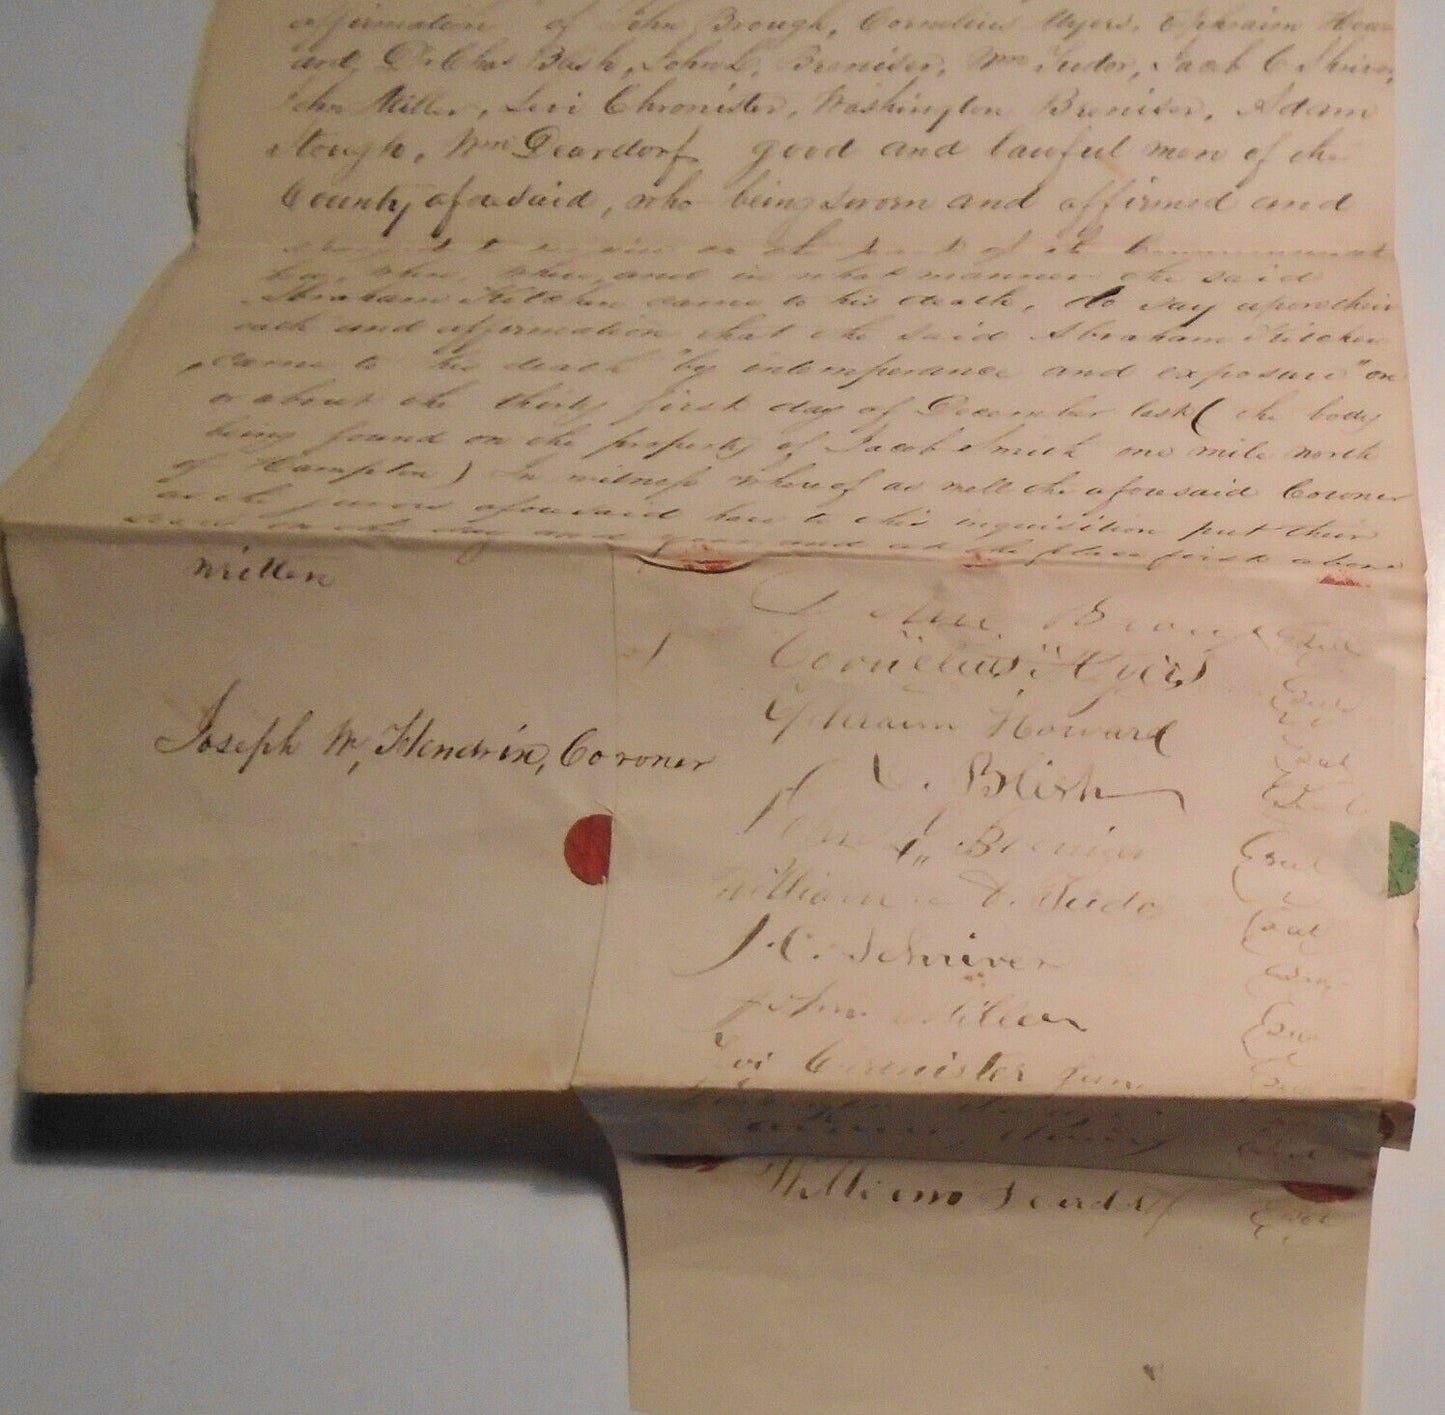 affirmation of John Brough, Cornelius Myers, Ephraim How
ard, Dr Chas Blish, John L. Breniser, Wm Tudor, Jacob C Shriver,
John Miller, Levi Chronister, Washington Breniser, Adam
Stough, Wm Deardorf good and lawful men of the
County aforesaid, who being sworn and affirmed and
to inquire on the part of the Commonweal
when, where, and in what manner the said
Abraham Kitchen came to his death, do say upon their
oath and affirmation that the said Abraham Kitchen
came to his death "by intemperance and exposure" on
or about the thirty first day of December last (the body
being found on the property of Jacob Smith one mile north
of Hampton) In witness whereof as well the aforesaid Coroner
as the jurors aforesaid have to this inquisition put their
seals on the day and year and at the place first above
written
John Brough Seal
Cornelius Myers Seal
Ephraim Howard Seal
Joseph W, Hendrix, Coroner
C. Blish Seal
John L Breniser Seal
William D. Tudor Seal
J. C. Schriver Seal
John Miller Seal
Levi Cronister Jun Seal
Seal
William Deardorf Seal